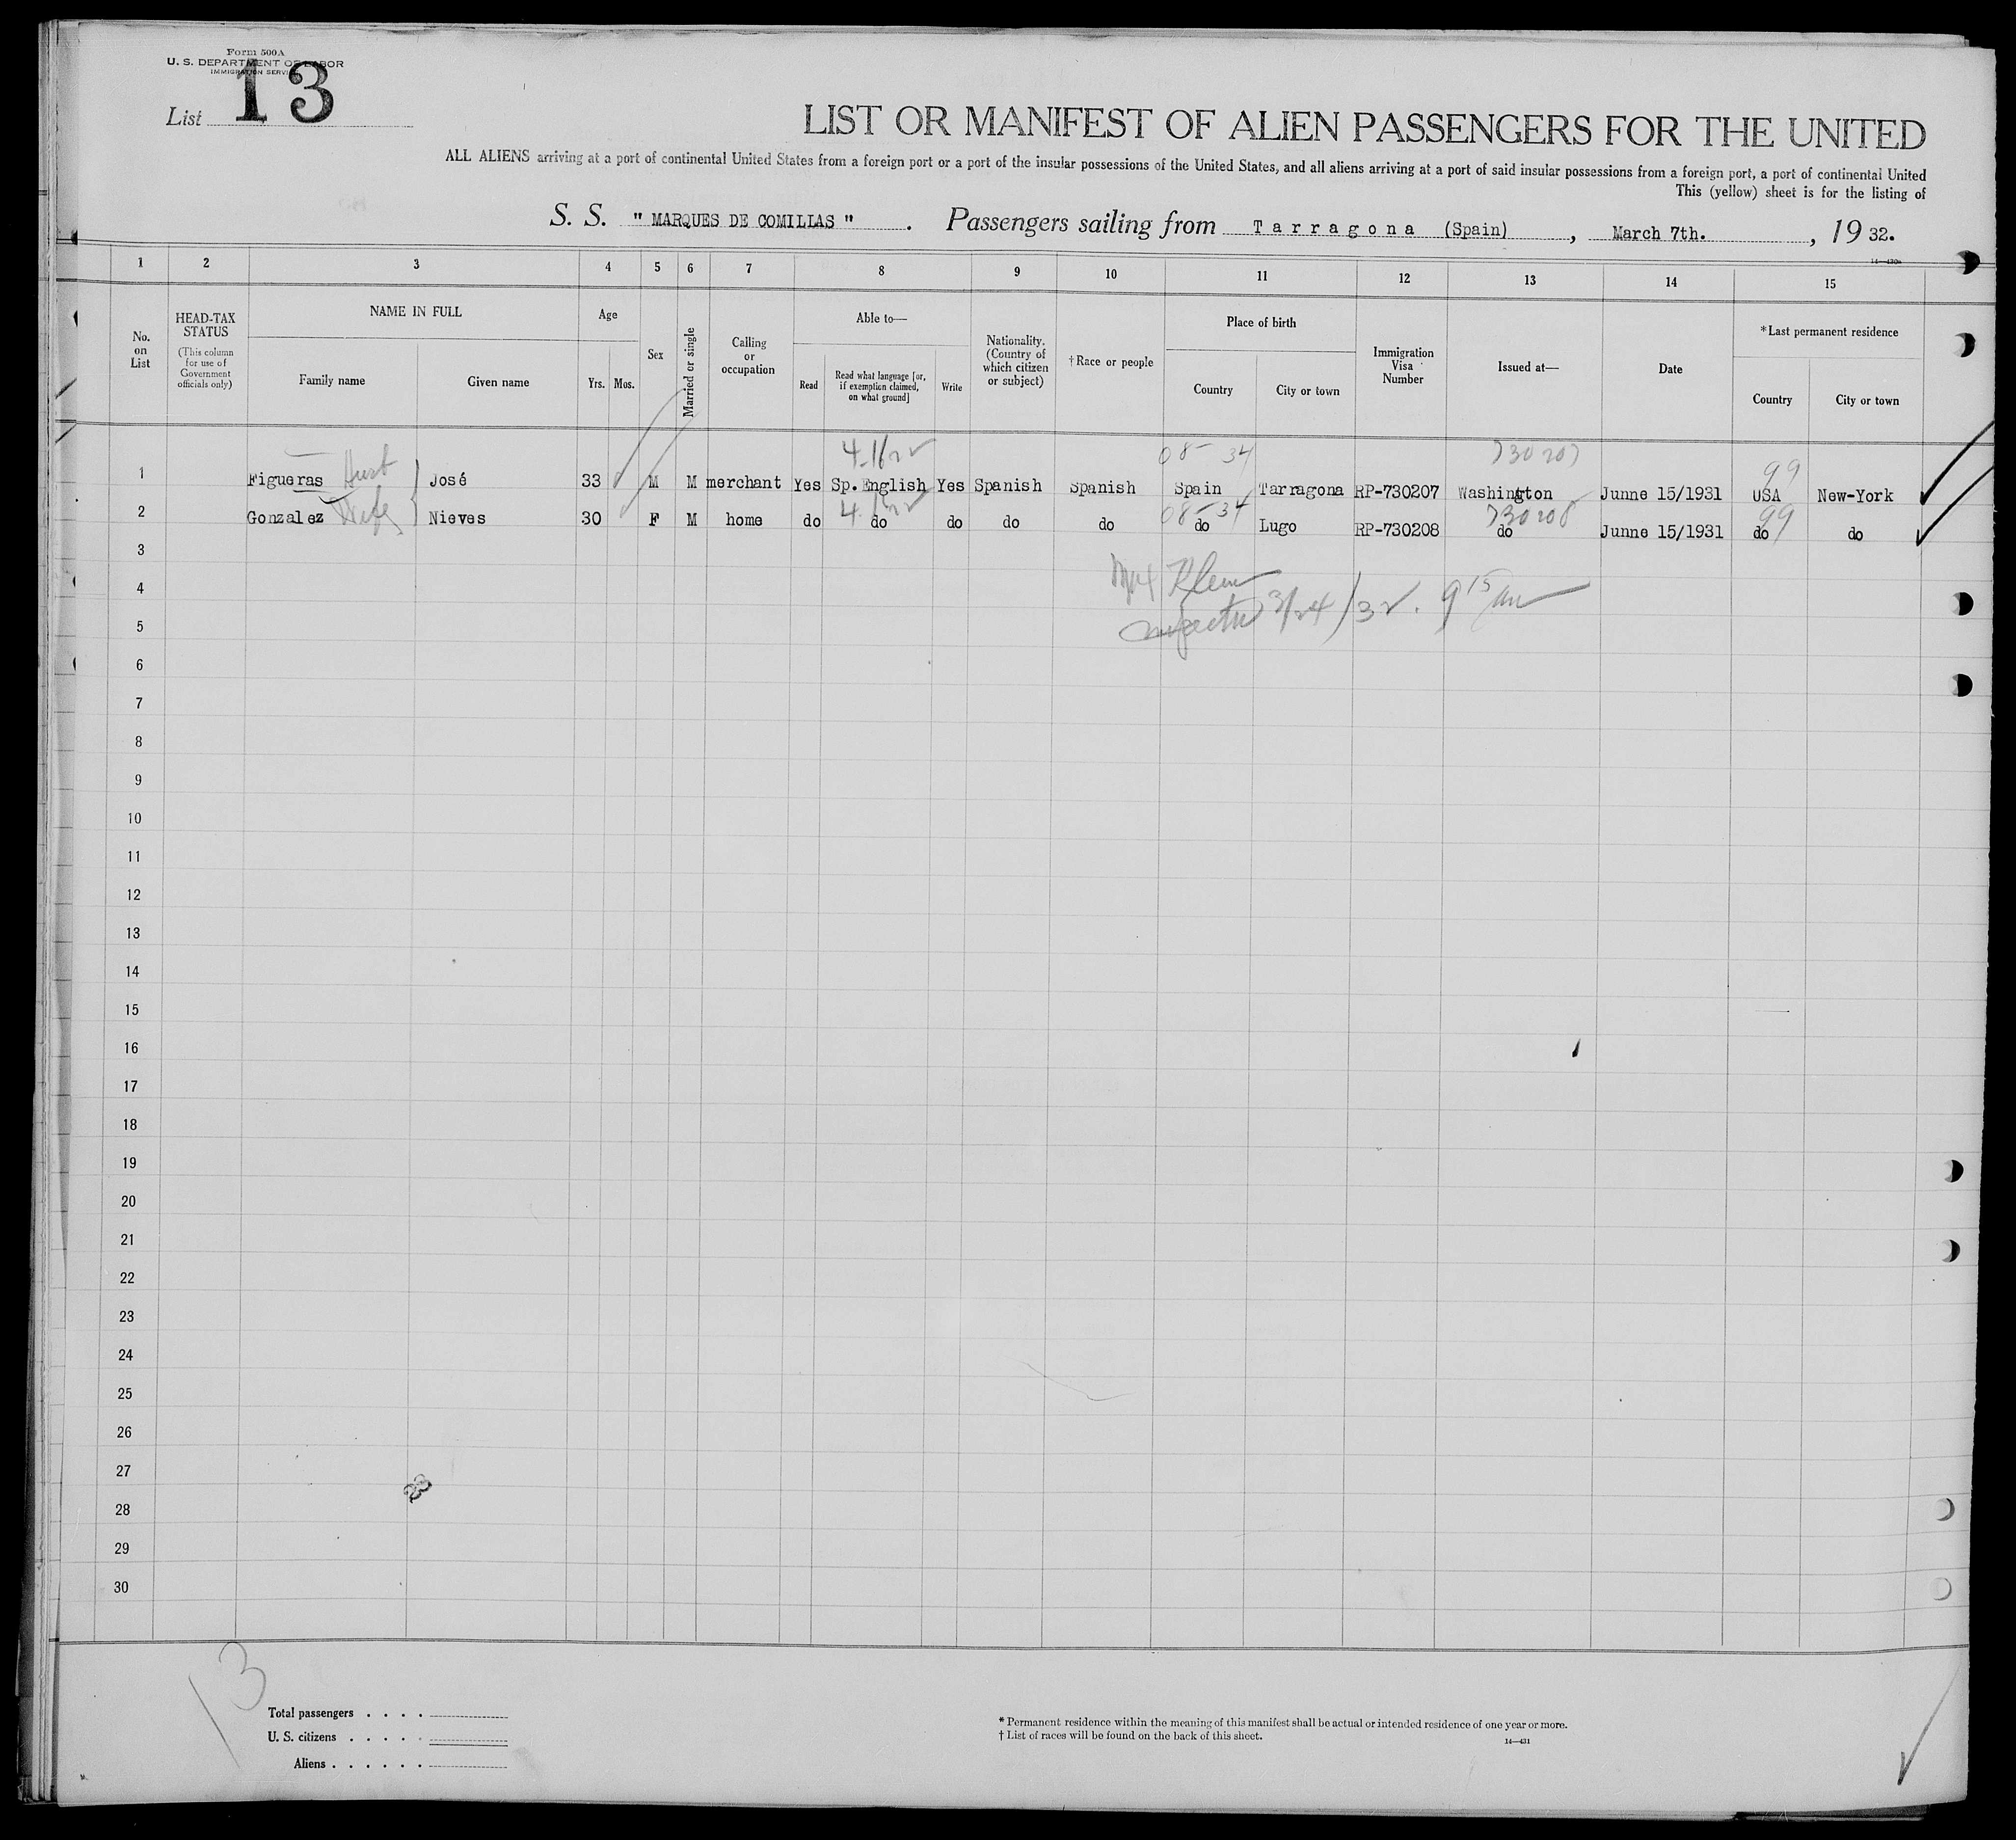 Form 500A
U. S. DEPARTMENT OF LABOR
IMMIGRATION SERVICE
List 13
LIST OR MANIFEST OF ALIEN PASSENGERS FOR THE UNITED
ALL ALIENS arriving at a port of continental United States from a foreign port or a port of the insular possessions of the United States, and all aliens arriving at a port of said insular possessions from a foreign port, a port of continental United
This (yellow) sheet is for the listing of
S. S. " MARQUES DE COMILLAS " . Passengers sailing from Tarragona (Spain) , March 7th. , 19 32.
14—430a
1 2 3 4 5 6 7 8 9 10 11 12 13 14 15
No. on List
HEAD-TAX STATUS (This column for use of Government officials only)
NAME IN FULL
Family name
Given name
Age
Yrs. Mos.
Sex
Married or single
Calling or occupation
Able to—
Read
Read what language [or, if exemption claimed, on what ground]
Write
Nationality. (Country of which citizen or subject)
†Race or people
Place of birth
Country
City or town
Immigration Visa Number
Issued at—
Date
*Last permanent residence
Country
City or town
08-34 730207 99
1 Figueras Husb José 33 M M merchant Yes Sp. English Yes Spanish Spanish Spain Tarragona RP-730207 Washington Junne 15/1931 USA New-York
08-34 730208 99
2 Gonzalez Wife Nieves 30 F M home do do do do do do Lugo RP-730208 do Junne 15/1931 do do
3
4
3/24/32. 9 15 am
5
6
7
8
9
10
11
12
13
14
15
16
17
18
19
20
21
22
23
24
25
26
27
28
29
30
13
Total passengers . . . .
U. S. citizens . . . . .
Aliens . . . . . .
* Permanent residence within the meaning of this manifest shall be actual or intended residence of one year or more.
† List of races will be found on the back of this sheet.
14—431